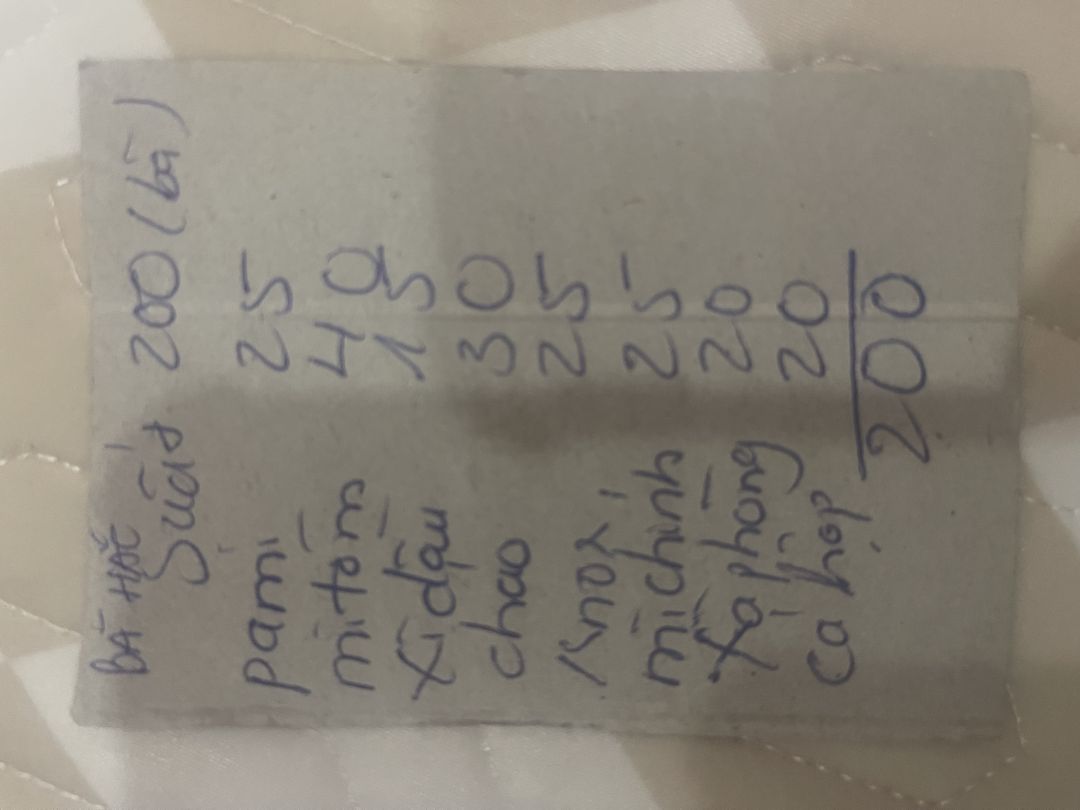 BÁ HẮC
Suất 200 (bà)
pami 25
mì tôm 40
xì dầu 15
chao 30
knor 25
mì chính 25
xà phòng 20
cá hộp 20
200